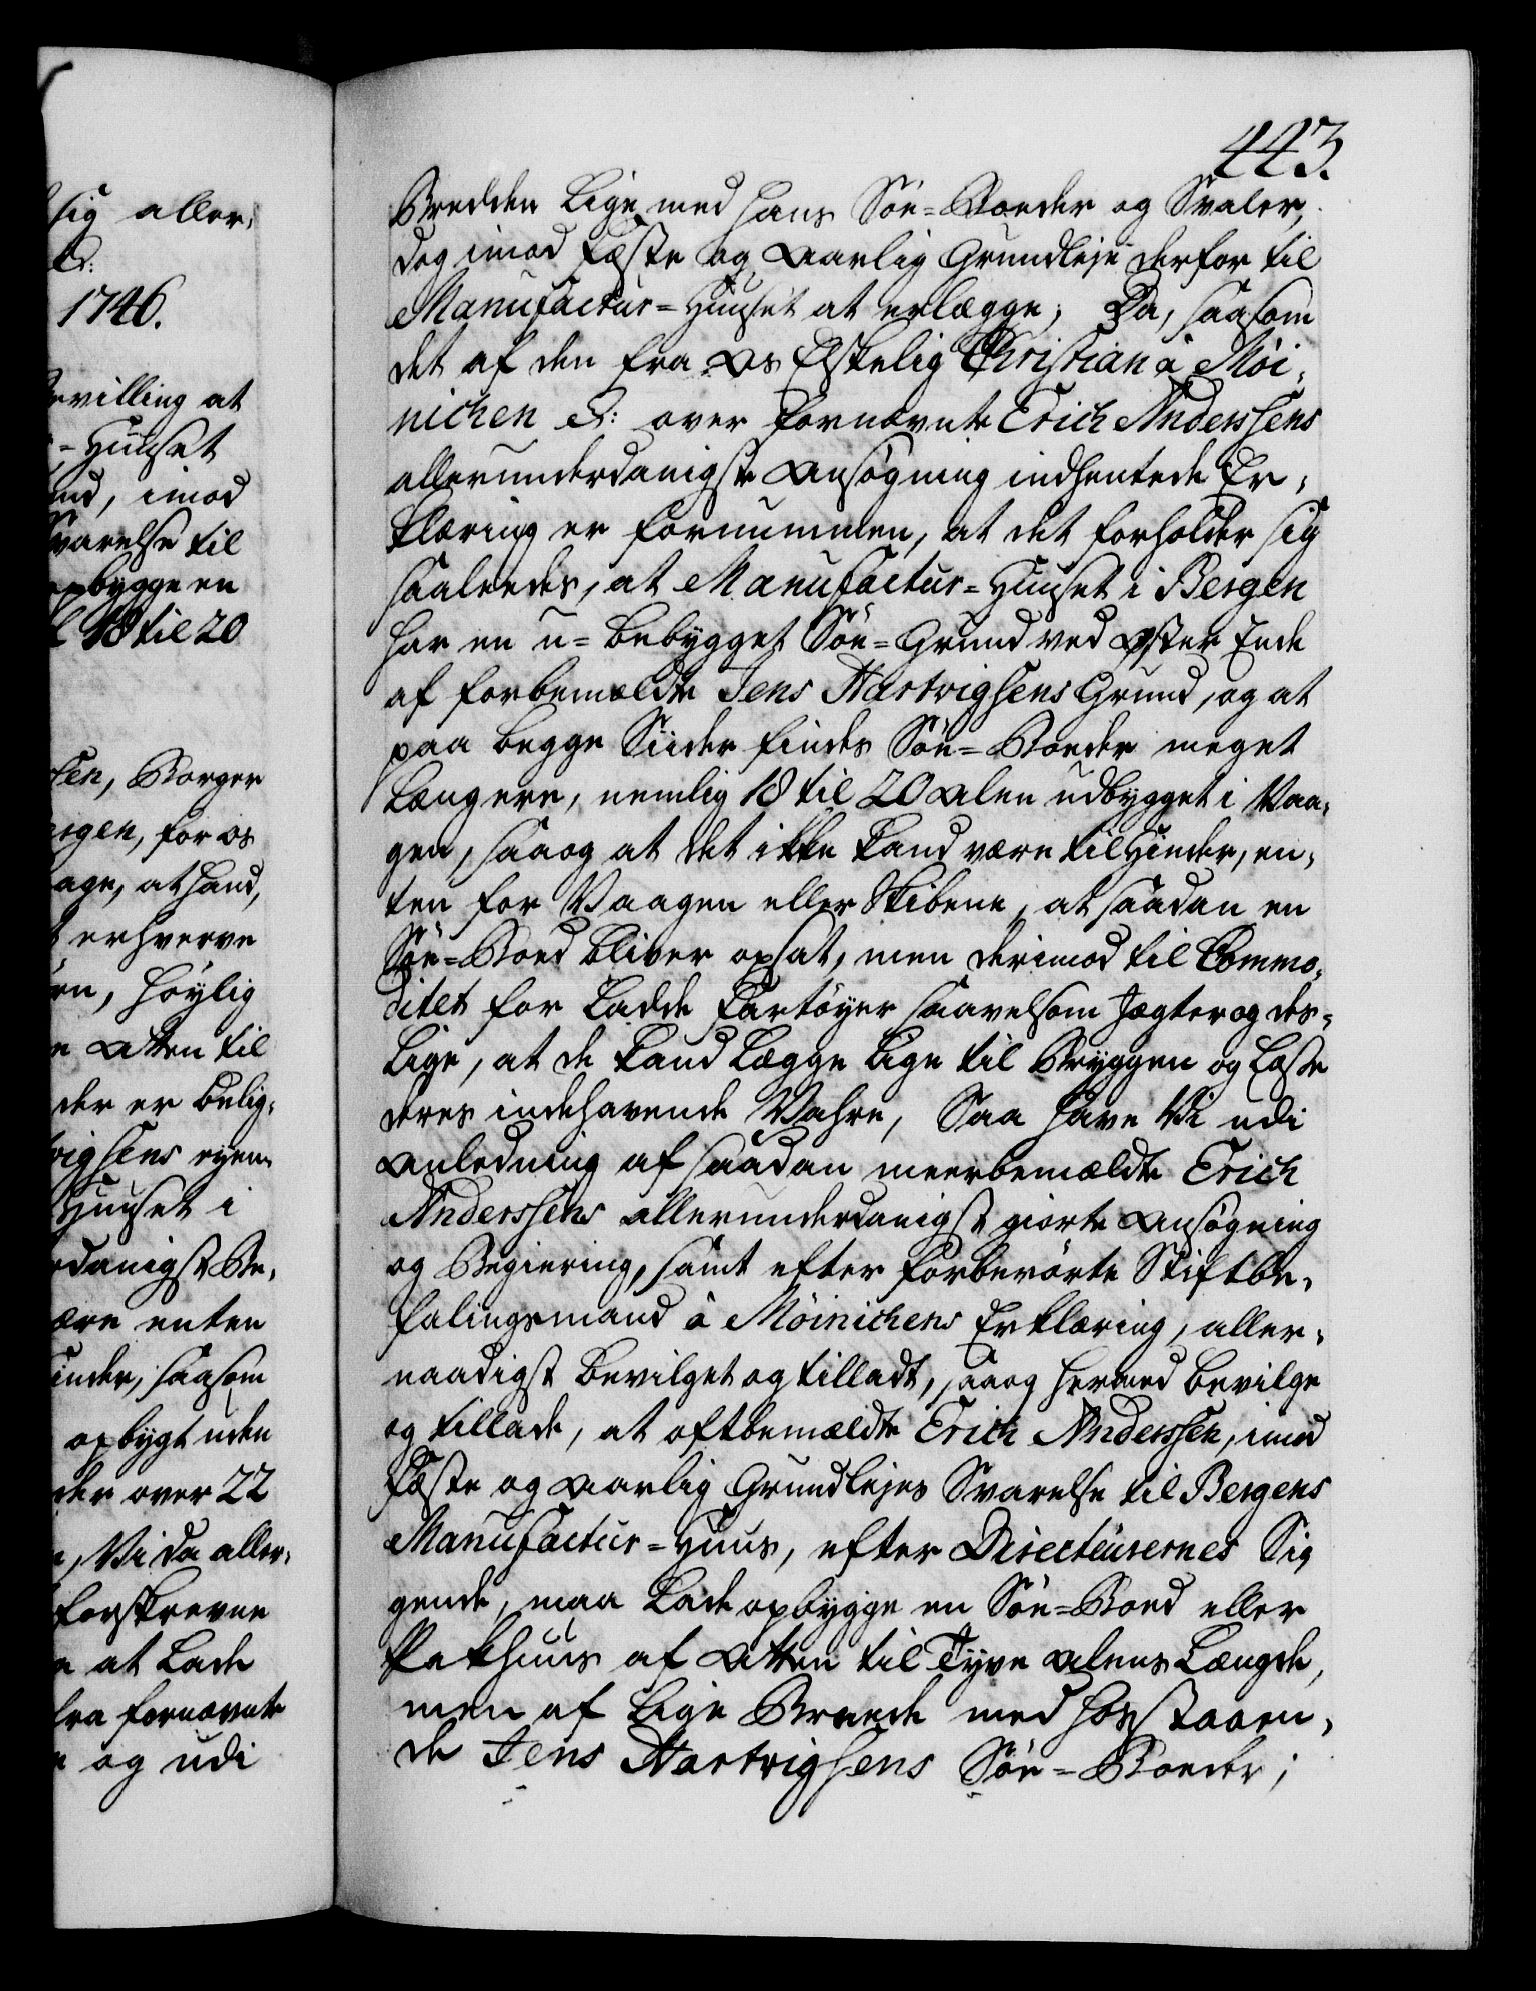 sig aller¬
&:
1746.
evilling at
=Huuset
und, imod
Svarelse til
opbygge en
18 til 20
sen, Borger
ergen, for os
age, at hand,
erhverve
rn, höylig
e Atten til
der er belig¬
vigsens eyen¬
Huuset i
danigst Be¬
ære enten
inder, saasom
opbygt uden
der over 22
, Vi da aller¬
forskrevne
at Lade
fra fornævnte
og udi
443.
Bredden lige med hans Söe=Boeder og Svaler,
dog imod Fæste og Aarlig Grundleje derfor til
Manufactur=Huuset at erlægge; Da, saasom
det af den fra Os Elskelig Christian à Möi¬
nichen &: over fornævnte Erich Anderssens
allerunderdanigste Ansögning indhentede Er¬
klæring er fornummen, at det forholder sig
saaledes, at Manufactur=Huuset i Bergen
har en u=bebygget Söe=Grund ved Öster Ende
af forbemældte Jens Hartvigsens Grund, og at
paa begge Siider findes Söe=Boeder meget
længere, nemlig 18 til 20 Alen udbygget i Vaa¬
gen, saa og at det ikke kand være til Hinder, en¬
ten for Vaagen eller Skibene, at saadan en
Söe=Boed bliver opsat, men derimod til Commo¬
ditet for ladde Fartöyer saavelsom Jægter og des¬
lige, at de kand lægge lige til Bryggen og losse
deres indehavende Vahre, Saa have Vi udi
Anledning af saadan meerbemældte Erich
Anderssens allerunderdanigst giorte Ansögning
og Begiering, samt efter forberörte Stiftbe¬
falingsmand à Möinichens Erklæring, aller¬
naadigst bevilget og tilladt, saa og hermed bevilge
og tillade, at oftbemældte Erich Anderssen, imod
Fæste og Aarlig Grundlejes Svarelse til Bergens
Manufactur=Huus, efter Directeurernes Sig
gende, maa lade opbygge en Söe=Boed eller
Pakhuus af Atten til Tyve Alens Længde,
men af lige Breede med hosstaaen¬
de Jens Hartvigsens Söe=Boeder;